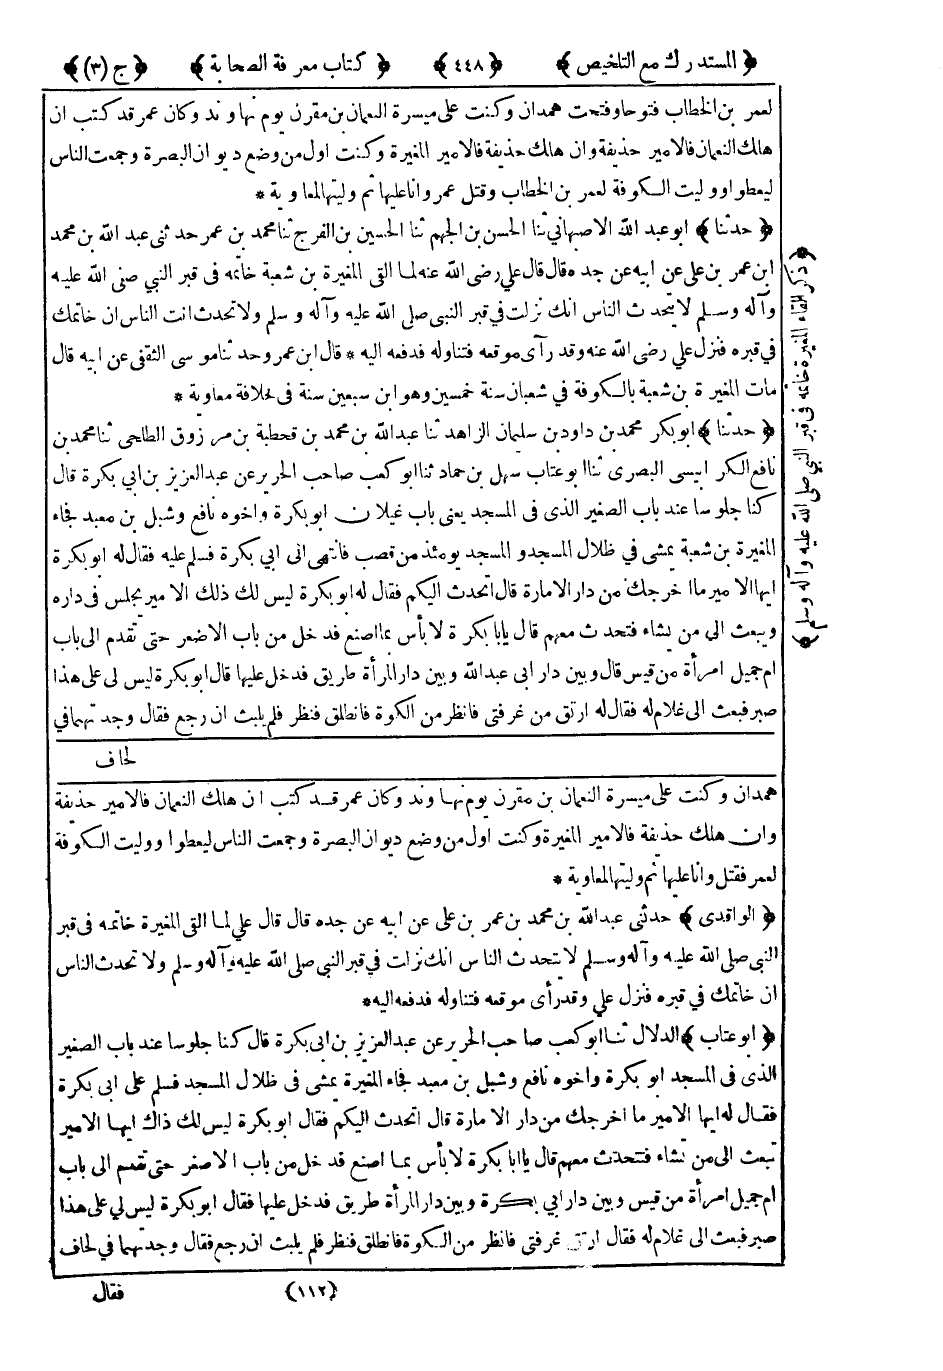 ﴿ المستدرك مع التلخيص ﴾ ﴿ ٤٤٨ ﴾ ﴿ كتاب معرفة الصحابة ﴾ ﴿ ج (٣) ﴾
لعمر بن الخطاب فتوحا وفتحت همدان وكنت على ميسرة النعمان بن مقرن يوم نهاوند وكان عمر قد كتب ان
هلك النعمان فالامير حذيفة وان هلك حذيفة فالامير المغيرة وكنت اول من وضع ديوان البصرة وجمعت الناس
ليعطوا ووليت الكوفة لعمر بن الخطاب وقتل عمر وانا عليها ثم وليتها لمعاوية *
﴿ حدثنا ﴾ ابو عبد الله الاصبهاني ثنا الحسن بن الجهم ثنا الحسين بن الفرج ثنا محمد بن عمر حدثني عبد الله بن محمد
ابن عمر بن علي عن ابيه عن جده قال قال علي رضي الله عنه لما القى المغيرة بن شعبة خاتمه في قبر النبي صلى الله عليه
وآله وسلم لا يتحدث الناس انك نزلت في قبر النبي صلى الله عليه وآله وسلم ولا تحدث انت الناس ان خاتمك
في قبره فنزل علي رضي الله عنه وقد رآى موقعه فتناوله فدفعه اليه * قال ابن عمر وحدثنا موسى الثقفي عن ابيه قال
مات المغيرة بن شعبة بالكوفة في شعبان سنة خمسين وهو ابن سبعين سنة في خلافة معاوية *
﴿ حدثنا ﴾ ابو بكر محمد بن داود بن سليمان الزاهد ثنا عبدالله بن محمد بن قحطبة بن مرزوق الطاحي ثنا محمد بن
نافع الكرابيسي البصري ثنا ابو عتاب سهل بن حماد ثنا ابو كعب صاحب الحرير عن عبدالعزيز بن ابي بكرة قال
كنا جلوسا عند باب الصغير الذي في المسجد يعني باب غيلان ابو بكرة واخوه نافع وشبل بن معبد فجاء
المغيرة بن شعبة يمشي في ظلال المسجد و المسجد يومئذ من قصب فانتهى الى ابي بكرة فسلم عليه فقال له ابو بكرة
ايها الامير ما اخرجك من دار الامارة قال اتحدث اليكم فقال له ابو بكرة ليس لك ذلك الامير يجلس في داره
ويبعث الى من يشاء فتحدث معهم قال يابا بكرة لا بأس بما اصنع فدخل من باب الاصغر حتى تقدم الى باب
ام جميل امرأة من قيس قال وبين دار ابي عبدالله وبين دار المرأة طريق فدخل عليها قال ابو بكرة ليس لي على هذا
صبر فبعث الى غلام له فقال له ارتق من غرفتي فانظر من الكوة فانطلق فنظر فلم يلبث ان رجع فقال وجدتهما في
لحاف
﴿ ذكر القاء المغيرة خاتمه في قبر النبي صلى الله عليه وآله وسلم ﴾
همدان وكنت على ميسرة النعمان بن مقرن يوم نهاوند وكان عمر قد كتب ان هلك النعمان فالامير حذيفة
وان هلك حذيفة فالامير المغيرة وكنت اول من وضع ديوان البصرة وجمعت الناس ليعطوا ووليت الكوفة
لعمر فقتل وانا عليها ثم وليتها لمعاوية *
﴿ الواقدي ﴾ حدثني عبدالله بن محمد بن عمر بن علي عن ابيه عن جده قال قال علي لما القى المغيرة خاتمه في قبر
النبي صلى الله عليه وآله وسلم لا يتحدث الناس انك نزلت في قبر النبي صلى الله عليه وآله وسلم ولا تحدث الناس
ان خاتمك في قبره فنزل علي وقد رأى موقعه فتناوله فدفعه اليه *
﴿ ابو عتاب ﴾ الدلال ثنا ابو كعب صاحب الحرير عن عبدالعزيز بن ابي بكرة قال كنا جلوسا عند باب الصغير
الذي في المسجد ابو بكرة واخوه نافع وشبل بن معبد فجاء المغيرة يمشي في ظلال المسجد فسلم على ابي بكرة
فقال له ايها الامير ما اخرجك من دار الامارة قال اتحدث اليكم فقال ابو بكرة ليس لك ذاك ايها الامير
تبعث الى من تشاء فتتحدث معهم قال يا ابا بكرة لا بأس بما اصنع فدخل من باب الاصغر حتى تقدم الى باب
ام جميل امرأة من قيس وبين دار ابي بكرة وبين دار المرأة طريق فدخل عليها فقال ابو بكرة ليس لي على هذا
صبر فبعث الى غلام له فقال ارتق غرفتي فانظر من الكوة فانطلق فنظر فلم يلبث ان رجع فقال وجدتهما في لحاف
(١١٢) فقال